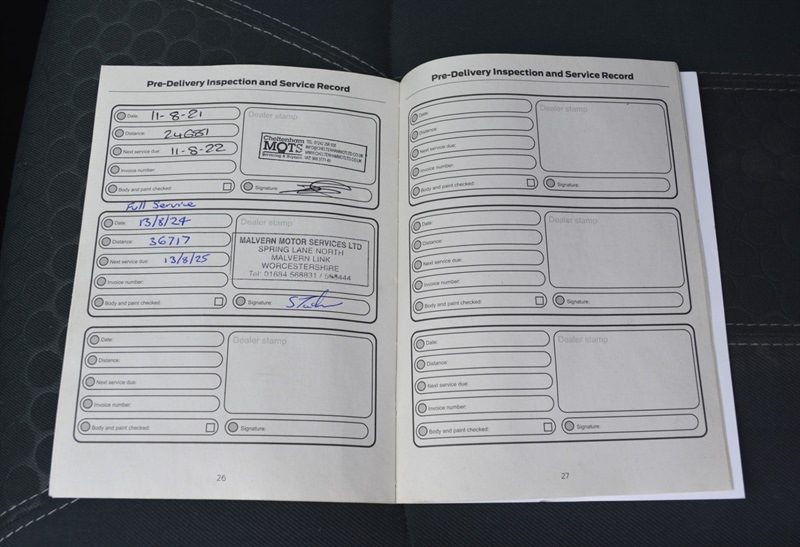 Pre-Delivery Inspection and Service Record
Date: 11-8-21
Dealer stamp
Distance:
Next service due: 11-8-22
Invoice number:
Body and paint checked:
Signature:
Cheltenham
MOTS
Servicing & Repairs
Full Service
Date: 13/8/24
Dealer stamp
Distance: 36717
Next service due: 13/8/25
Invoice number:
Body and paint checked:
Signature:
MALVERN MOTOR SERVICES LTD
SPRING LANE NORTH
MALVERN LINK
WORCESTERSHIRE
Tel: 01684 568831 /
Date:
Dealer stamp
Distance:
Next service due:
Invoice number:
Body and paint checked:
Signature:
26
Pre-Delivery Inspection and Service Record
Date:
Dealer stamp
Distance:
Next service due:
Invoice number:
Body and paint checked:
Signature:
Date:
Dealer stamp
Distance:
Next service due:
Invoice number:
Body and paint checked:
Signature:
Date:
Dealer stamp
Distance:
Next service due:
Invoice number:
Body and paint checked:
Signature:
27